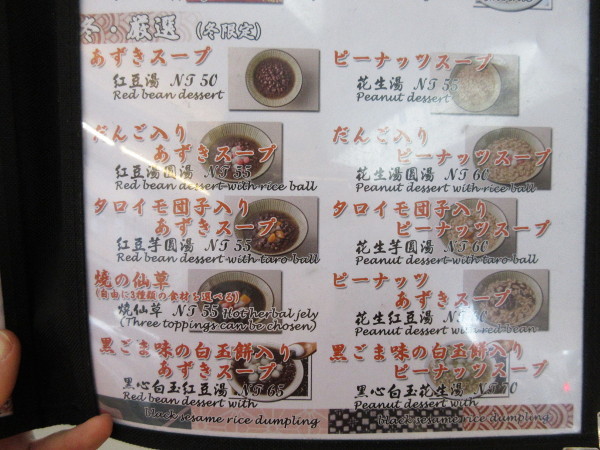 冬·厳選 (冬限定)
あずきスープ
紅豆湯 NT 50
Red bean dessert
ピーナッツスープ
花生湯 NT 55
Peanut dessert
だんご入り
あずきスープ
紅豆湯圓湯 NT 55
Red bean dessert with rice ball
だんご入り
ピーナッツスープ
花生湯圓湯 NT 60
Peanut dessert with rice ball
タロイモ団子入り
あずきスープ
紅豆芋圓湯 NT 55
Red bean dessert with taro ball
タロイモ団子入り
ピーナッツスープ
花生芋圓湯 NT 60
Peanut dessert with taro ball
焼の仙草
(自由に3種類の食材を選べる)
燒仙草 NT 55 Hot herbal jely
(Three toppings can be chosen)
ピーナッツ
あずきスープ
花生紅豆湯 NT 60
Peanut dessert with red bean
黒ごま味の白玉餅入り
あずきスープ
黑心白玉紅豆湯 NT 65
Red bean dessert with
black sesame rice dumpling
黒ごま味の白玉餅入り
ピーナッツスープ
黑心白玉花生湯 NT 70
Peanut dessert with
black sesame rice dumpling